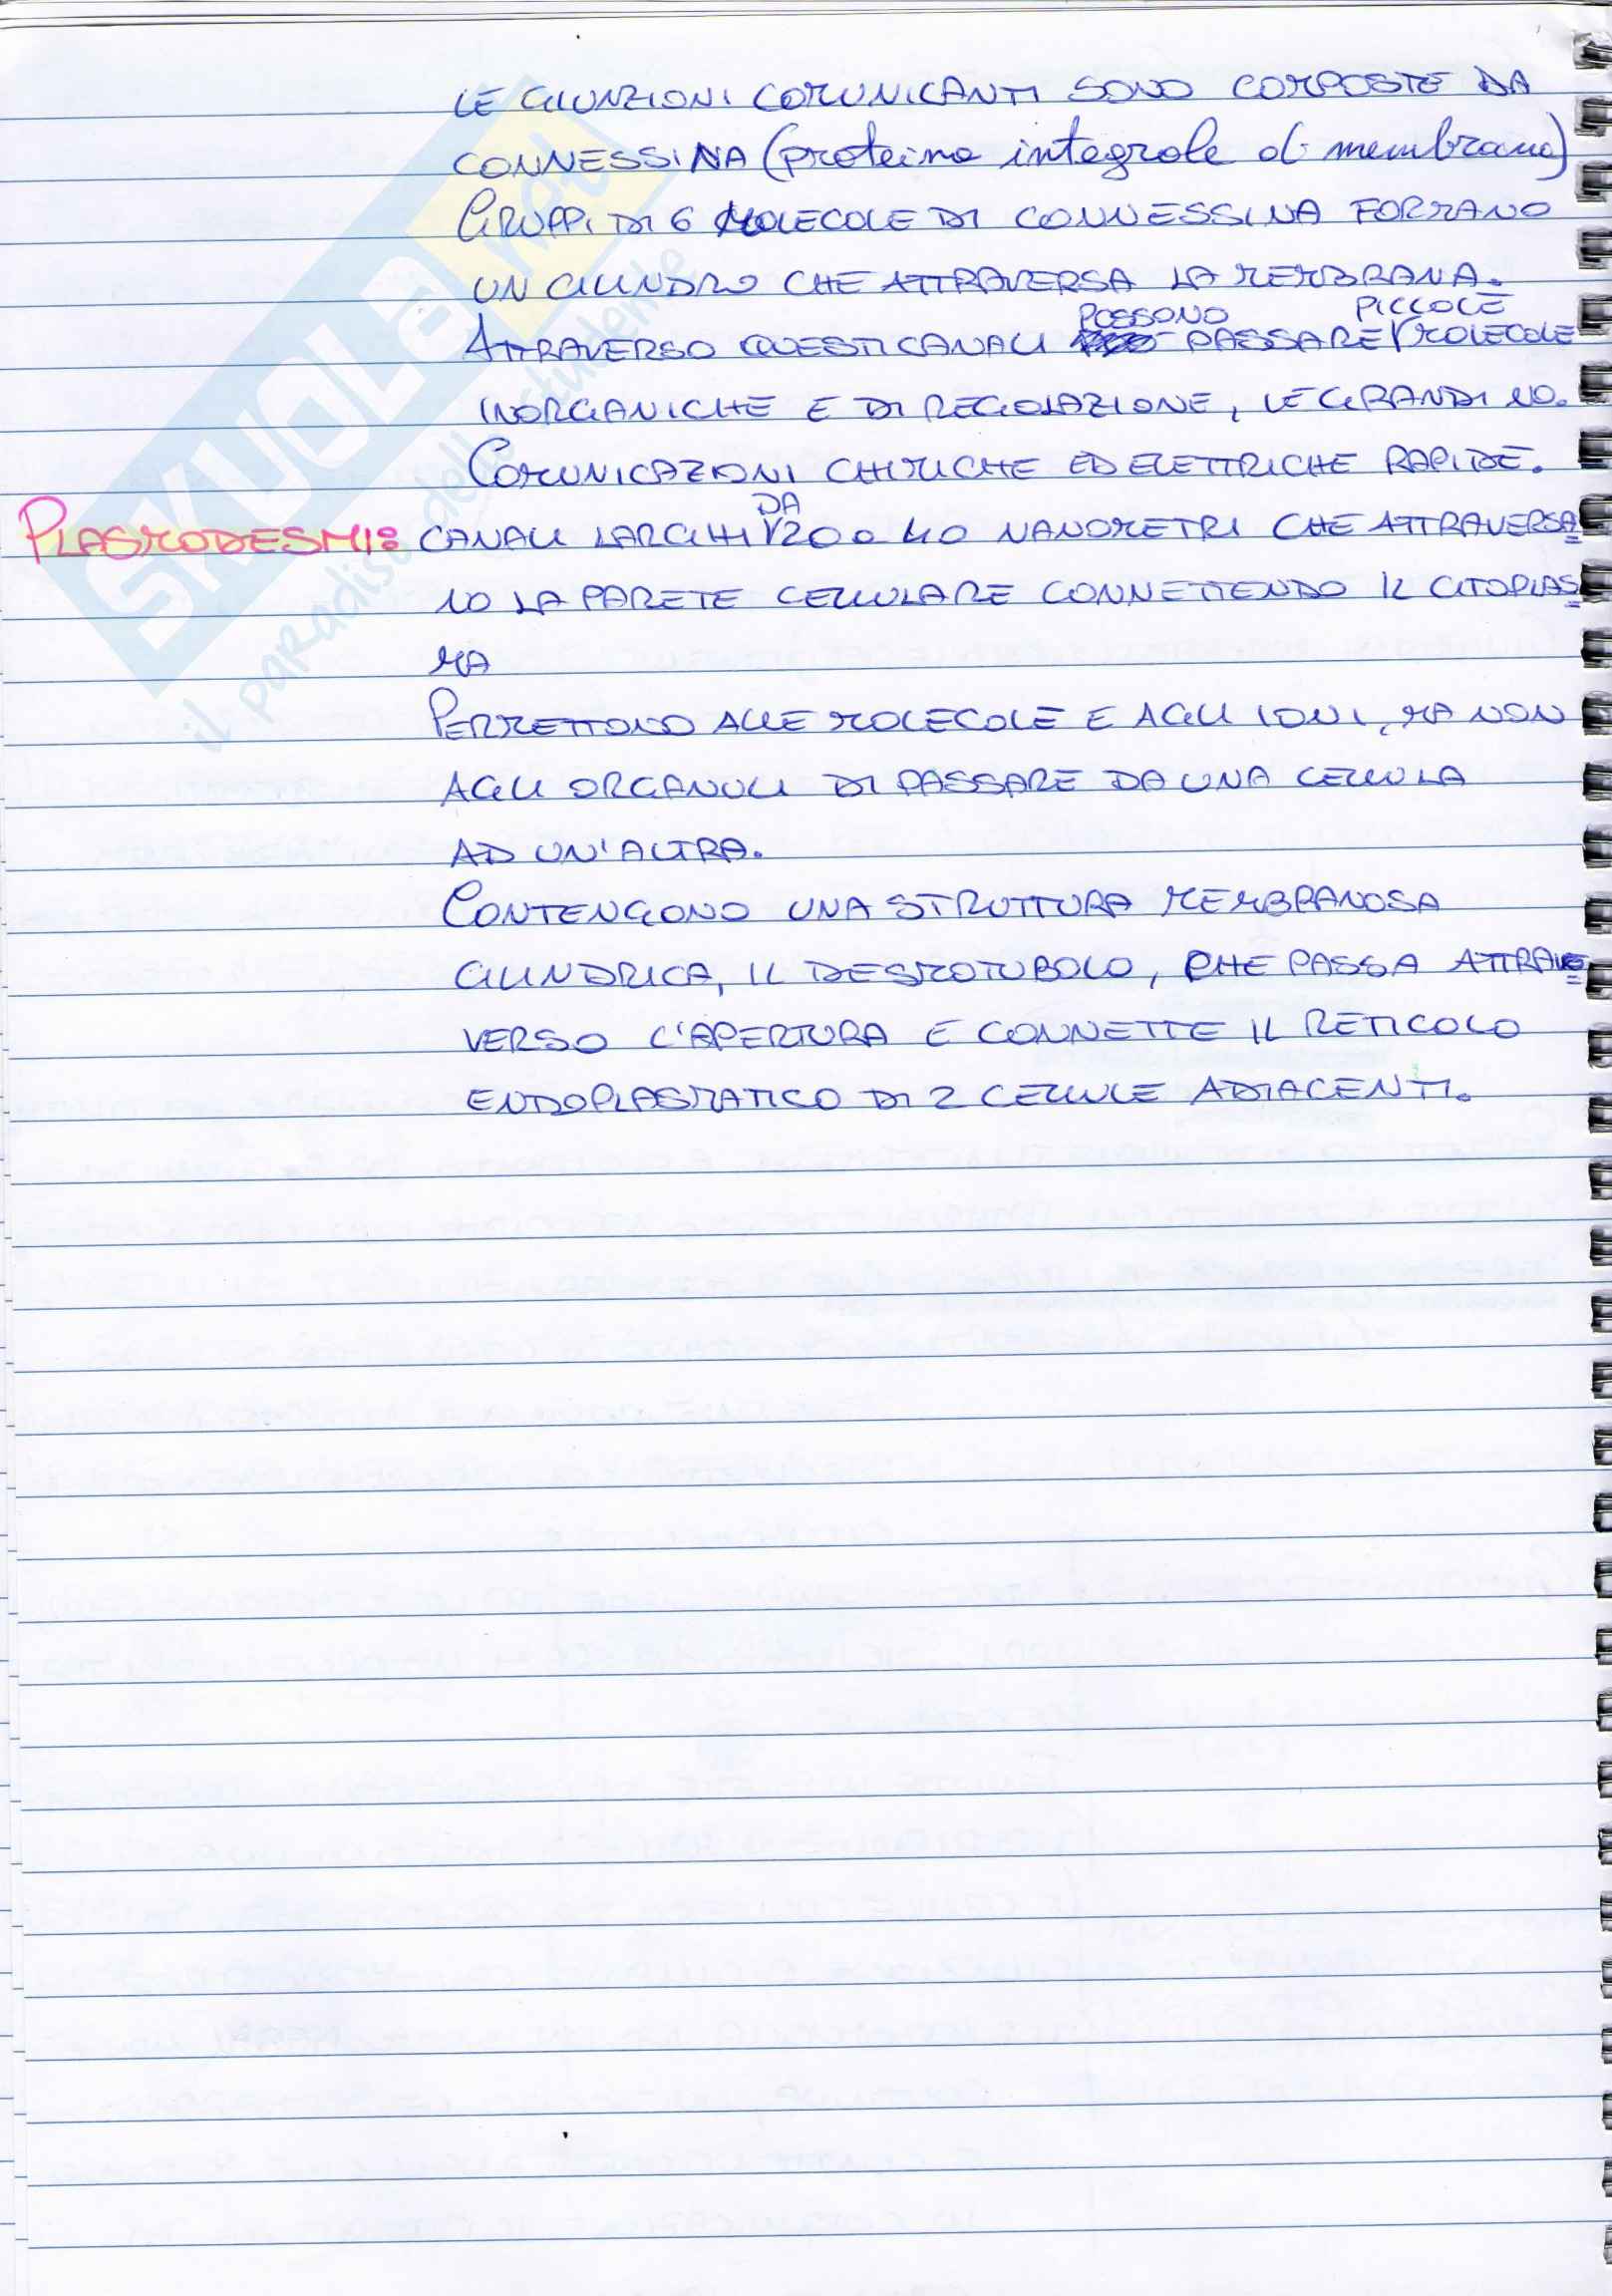 LE GIUNZIONI COMUNICANTI SONO COMPOSTE DA
CONNESSINA (proteina integrale di membrana)
GRUPPI DI 6 MOLECOLE DI CONNESSINA FORMANO
UN CILINDRO CHE ATTRAVERSA LA MEMBRANA.
ATTRAVERSO QUESTI CANALI POSSONO PASSARE PICCOLE MOLECOLE
INORGANICHE E DI REGOLAZIONE, LE GRANDI NO.
COMUNICAZIONI CHIMICHE ED ELETTRICHE RAPIDE.
PLASMODESMI: CANALI LARGHI DA 20 a 40 NANOMETRI CHE ATTRAVERSA
NO LA PARETE CELLULARE CONNETTENDO IL CITOPLAS
MA
PERMETTONO ALLE MOLECOLE E AGLI IONI, MA NON
AGLI ORGANULI DI PASSARE DA UNA CELLULA
AD UN'ALTRA.
CONTENGONO UNA STRUTTURA MEMBRANOSA
CILINDRICA, IL DESMOTUBOLO, CHE PASSA ATTRA
VERSO L'APERTURA E CONNETTE IL RETICOLO
ENDOPLASMATICO DI 2 CELLULE ADIACENTI.
SKUOLA.net
il paradiso dello studente